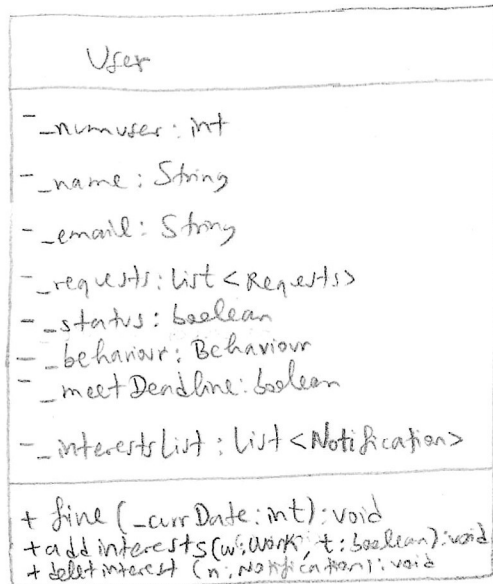 User
- _numuser: int
- _name: String
- _email: String
- _requests: List <Requests>
- _status: boolean
- _behaviour: Behaviour
- _meetDeadline: boolean
- _interestsList: List <Notification>
+ fine (_currDate: int): void
+ add interests (w: Work, t: boolean): void
+ delet interest (n: Notification): void